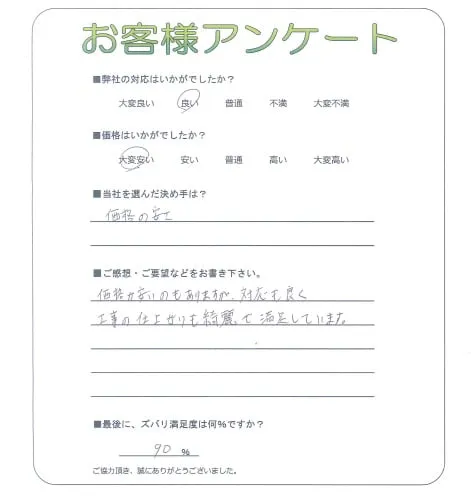 お客様アンケート
■弊社の対応はいかがでしたか？
大変良い 良い 普通 不満 大変不満
■価格はいかがでしたか？
大変安い 安い 普通 高い 大変高い
■当社を選んだ決め手は？
価格の安さ
■ご感想・ご要望などをお書き下さい。
価格が安いのもありますが、対応も良く
工事の仕上がりも綺麗で満足しています。
■最後に、ズバリ満足度は何％ですか？
90 ％
ご協力頂き、誠にありがとうございました。